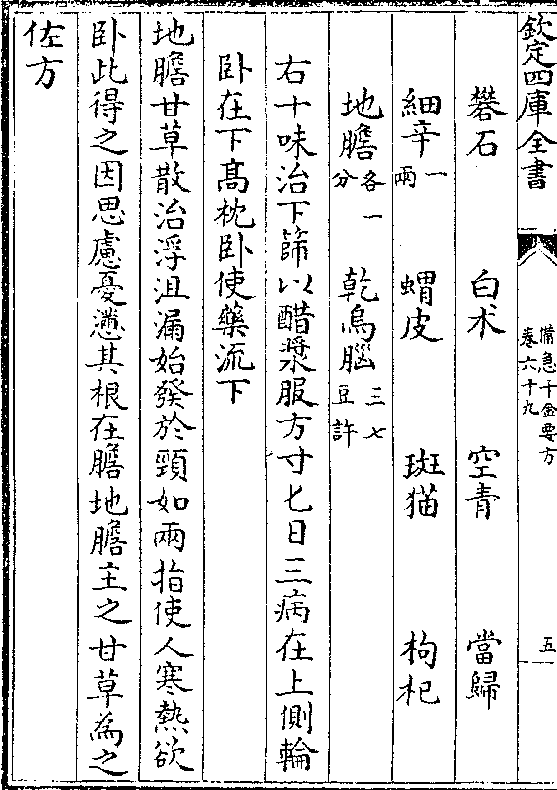 欽定四庫全書
備急千金要方
卷六十九
五
礬石 白术 空青 當歸
細辛一兩 蝟皮 斑猫 枸杞
地膽各一分 乾烏腦三大豆許
右十味治下篩以醋漿服方寸匕日三病在上側輪
卧在下高枕卧使藥流下
地膽甘草散治浮沮漏始發於頸如兩指使人寒熱欲
卧此得之因思慮憂懣其根在膽地膽主之甘草為之
佐方